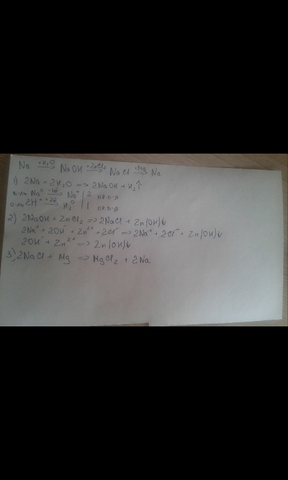 Na +H₂O→ NaOH +ZnCl₂→ NaCl +Mg→ Na
1) 2Na + 2H₂O → 2NaOH + H₂↑
Na⁰ → Na⁺ | 2
2H⁺ → H₂⁰ | 1
2) 2NaOH + ZnCl₂ → 2NaCl + Zn(OH)₂↓
2Na⁺ + 2OH⁻ + Zn²⁺ + 2Cl⁻ → 2Na⁺ + 2Cl⁻ + Zn(OH)₂↓
2OH⁻ + Zn²⁺ → Zn(OH)₂↓
3) 2NaCl + Mg → MgCl₂ + 2Na